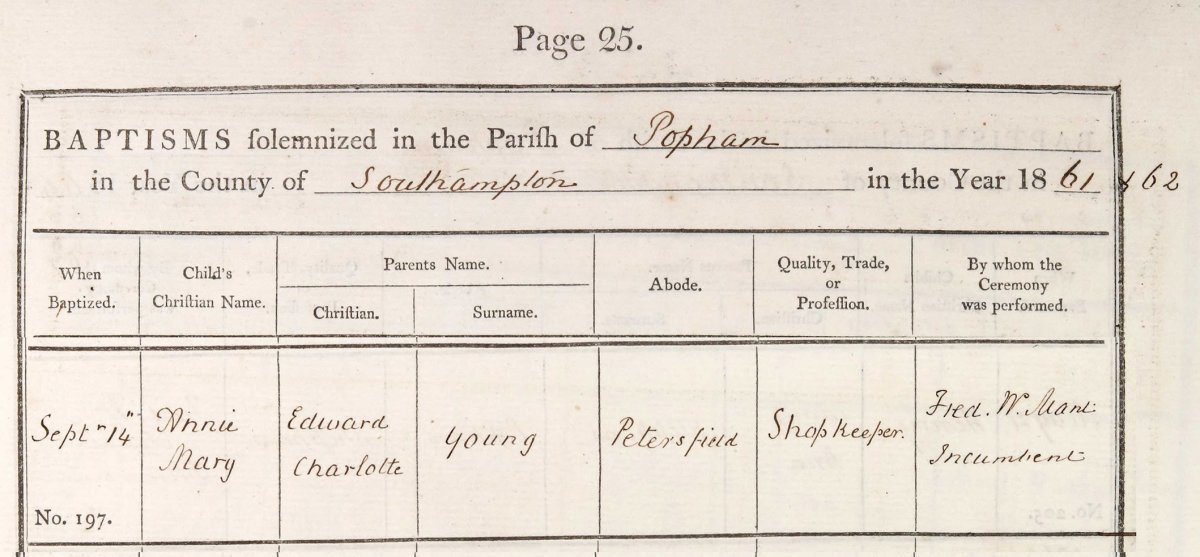 Page 25.
BAPTISMS ſolemnized in the Pariſh of Popham
in the County of Southampton in the Year 18 61 & 62
When
Baptized.
Child's
Chriſtian Name.
Parents Name.
Chriſtian.
Surname.
Abode.
Quality, Trade,
or
Profeſſion.
By whom the
Ceremony
was performed.
Septr 14"
No. 197.
Annie
Mary
Edward
Charlotte
Young
Petersfield
Shopkeeper.
Fred. W. Mant
Incumbent